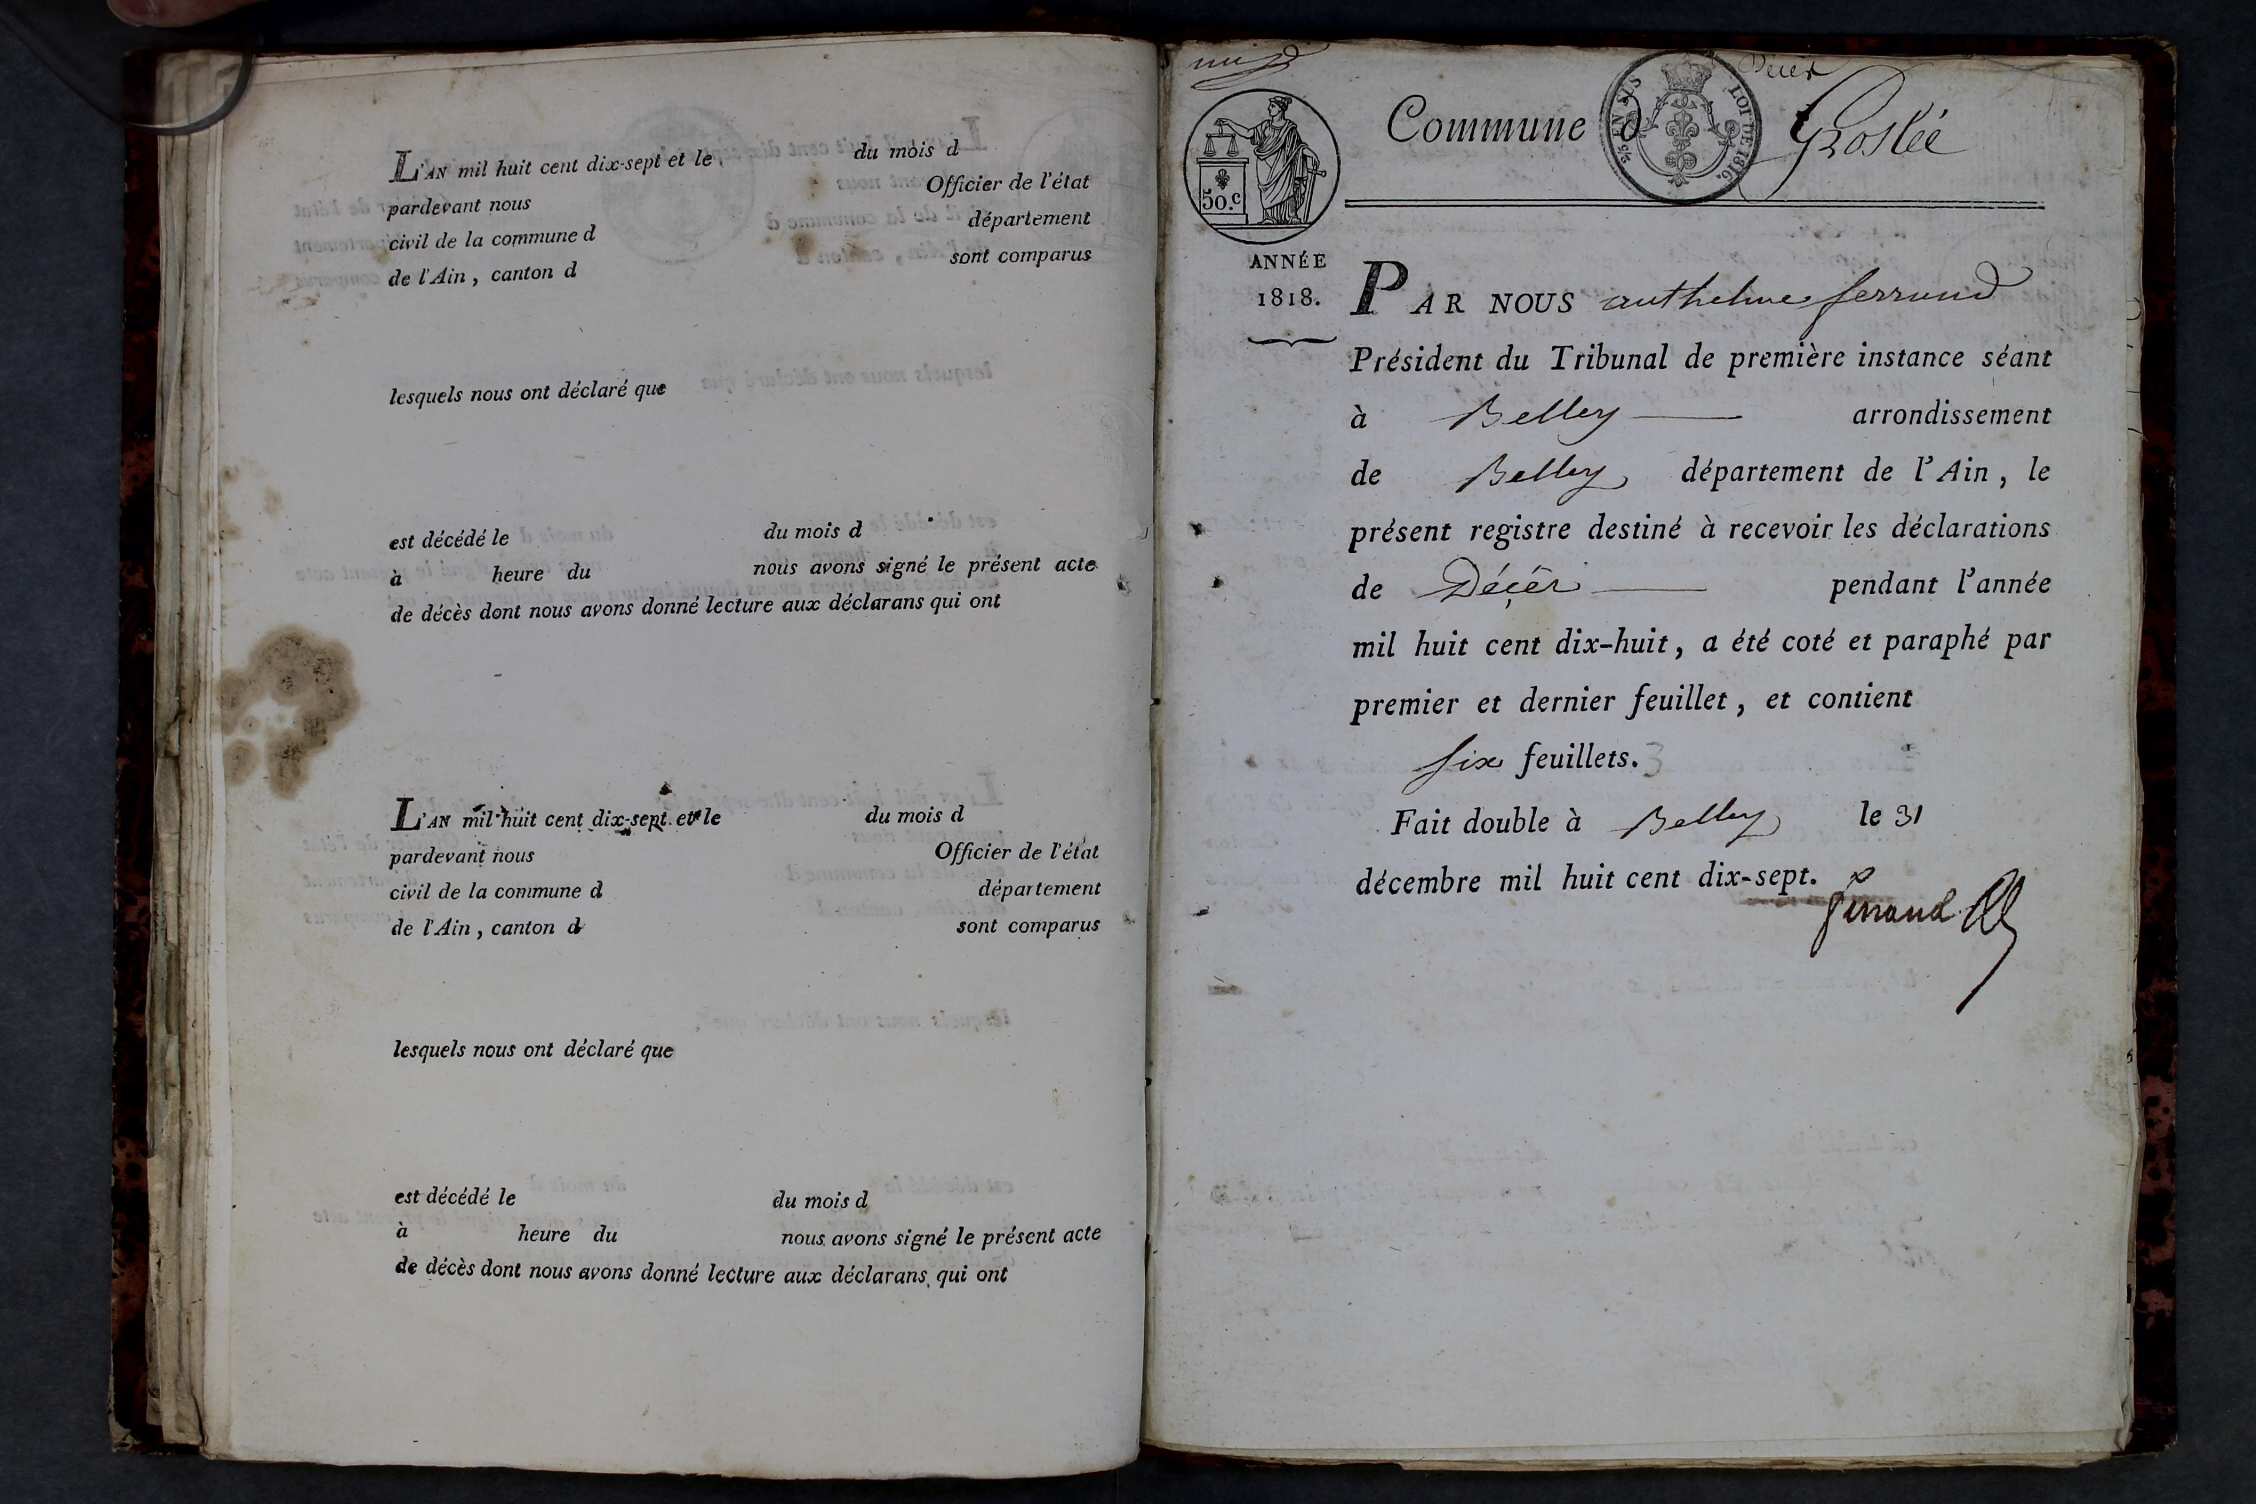 L'AN mil huit cent dix-sept et le du mois d
pardevant nous Officier de l'état
civil de la commune d département
de l'Ain, canton d sont comparus
lesquels nous ont déclaré que
est décédé le du mois d
à heure du nous avons signé le présent acte
de décès dont nous avons donné lecture aux déclarans qui ont
L'AN mil huit cent dix-sept et le du mois d
pardevant nous Officier de l'état
civil de la commune d département
de l'Ain, canton d sont comparus
lesquels nous ont déclaré que
est décédé le du mois d
à heure du nous avons signé le présent acte
de décès dont nous avons donné lecture aux déclarans qui ont
Décès
Commune d Groslée
EN SUS LOI DE 1816.
50.c
ANNÉE
1818.
PAR NOUS anthelme ferrand
Président du Tribunal de première instance séant
à Belley arrondissement
de Belley département de l'Ain, le
présent registre destiné à recevoir les déclarations
de Décès pendant l'année
mil huit cent dix-huit, a été coté et paraphé par
premier et dernier feuillet, et contient
six feuillets. 3
Fait double à Belley le 31
décembre mil huit cent dix-sept.
ferrand